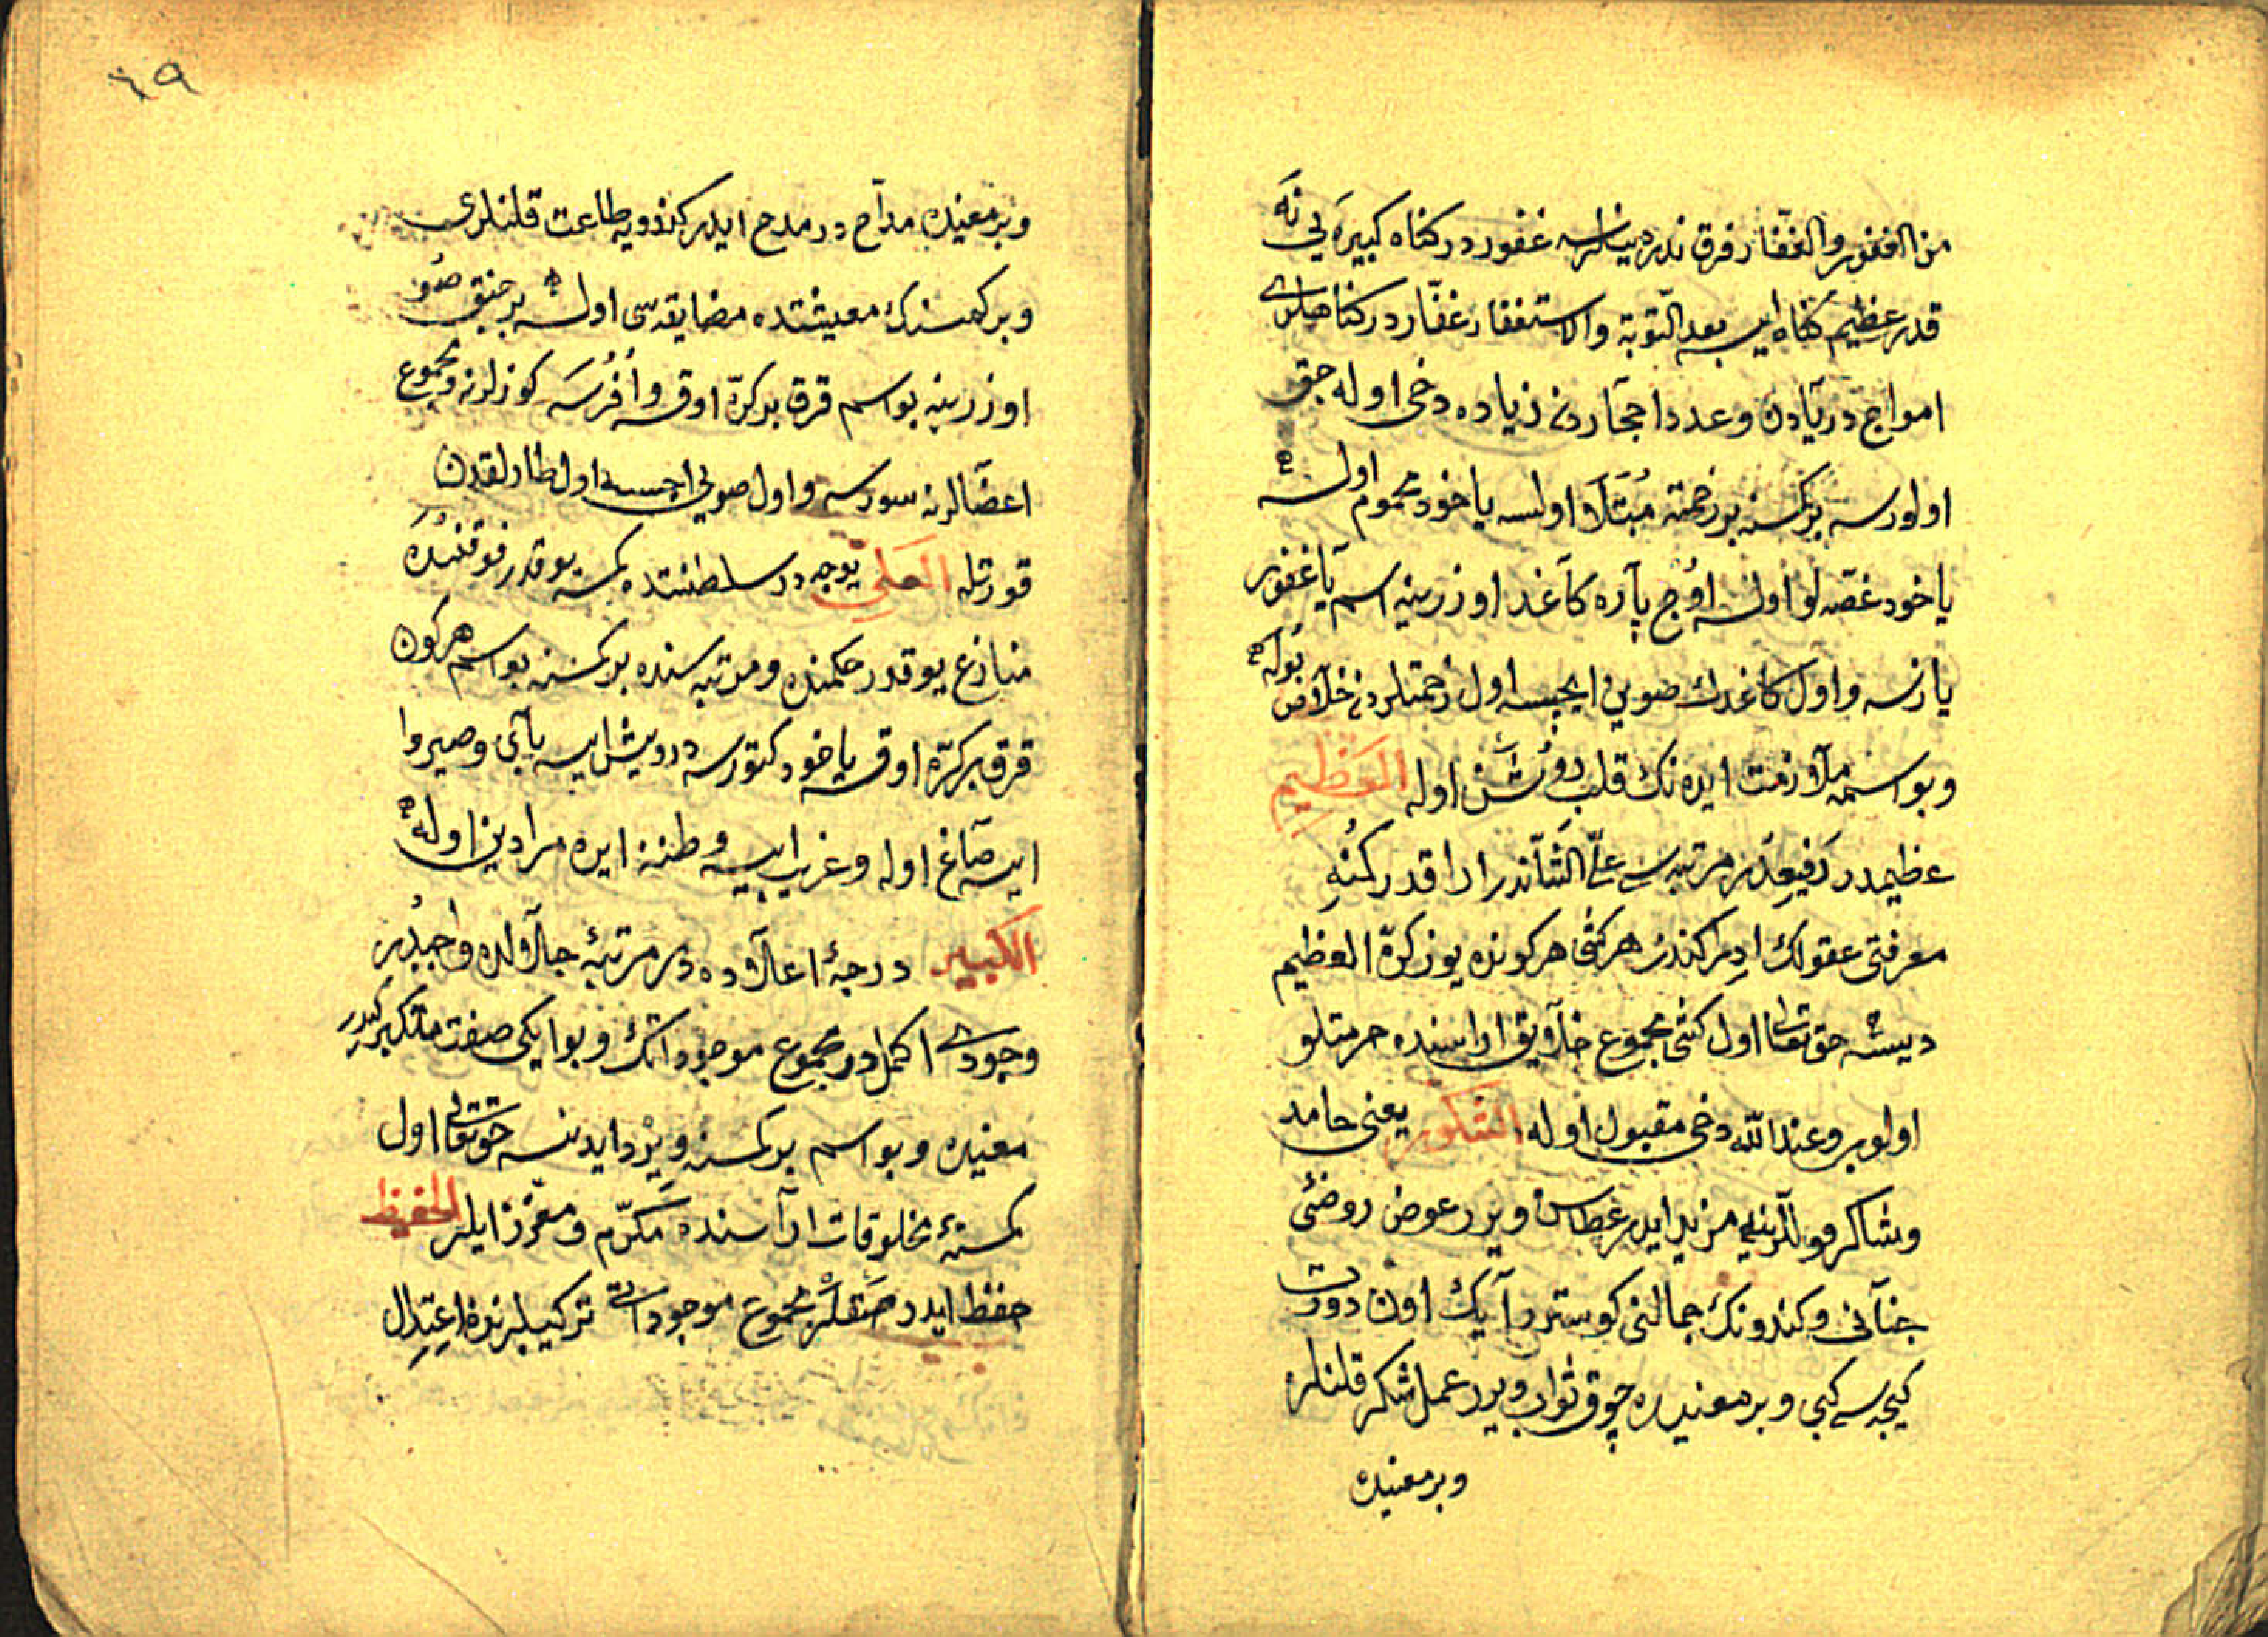 من الغفور والغفّار فرق ندر دينلرسه غفور در كناه كبيره يی نه
قدر عظيم كناه ايسه بعد التّوبة والاستغفار غفّار در كناهلری
امواج دريادن وعدد احجاردن زياده دخی اوله جق
اولورسه بر كمسنه بر زحمته مبتلا اولسه ياخود محموم اولسه
ياخود غصّه لو اولسه اوج پاره كاغد اوزرينه اسم يا غفور
يازسه واول كاغدك صويی ايچسه اول زحمتلردن خلاص بوله
وبو اسمه ملازمت ايده نك قلبی روشن اوله العظيم
عظيمدر رفيعدر مرتبه سی علیّ الشّاندر ادراقدر كنه
معرفتی عقولك ادراكندن هر كشی هر كونده يوز كرّه العظيم
ديسه حق تعالی اول كشی مجموع خلايق اراسنده حرمتلو
اولوبر وعند الله دخی مقبول اوله الشكور يعنی حامد
وشاكر قوللرينی مزيد ايدر عطاسن ويرر عوض روضئی
جنانی وكندونك جمالنی كوستر آيك اون دورت
كيجه سی كبی وبر معنيده چوق ثواب ويرر عمل شكر قلنلره
وبر معنيده
٦٩
وبر معنيده مدّاح در مدح ايدر كندويه طاعت قلنلری
وبر كمسنك معيشتده مضايقه سی اولسه بر چنق صو
اوزرينه بو اسم قرق بر كرّه اوقسه وافرسه كوزلرنه ومجموع
اعضالرنه سورسه واول صويی ايچسه اول طارلقدن
قورتله العلی يوجه در سلطنتده كمسه يوقدر فوقنده
منازع يوقدر حكمنده ومرتبه سنده بر كمسنه بو اسم هر كون
قرق بر كرّه اوقسه ياخود كتورسه درويش ايسه بای وصيروا
ايسه صاغ اوله وغريب ايسه وطننه ايره مرادين اوله
الكبير درجۀ اعلاده در مرتبۀ جلالده واجبدر
وجودی اكمل در مجموع موجوداتك وبو ايكی صفت متكبر كبير
معنيده وبو اسم بر كمسنه ويرد ايدنسه حق تعالی اول
كمسنۀ مخلوقات اراسنده مكرّم ومعزّز ايلر الحفيظ
حفظ ايدر صقلر مجموع موجوداتی تركيبلرنده اعتدال